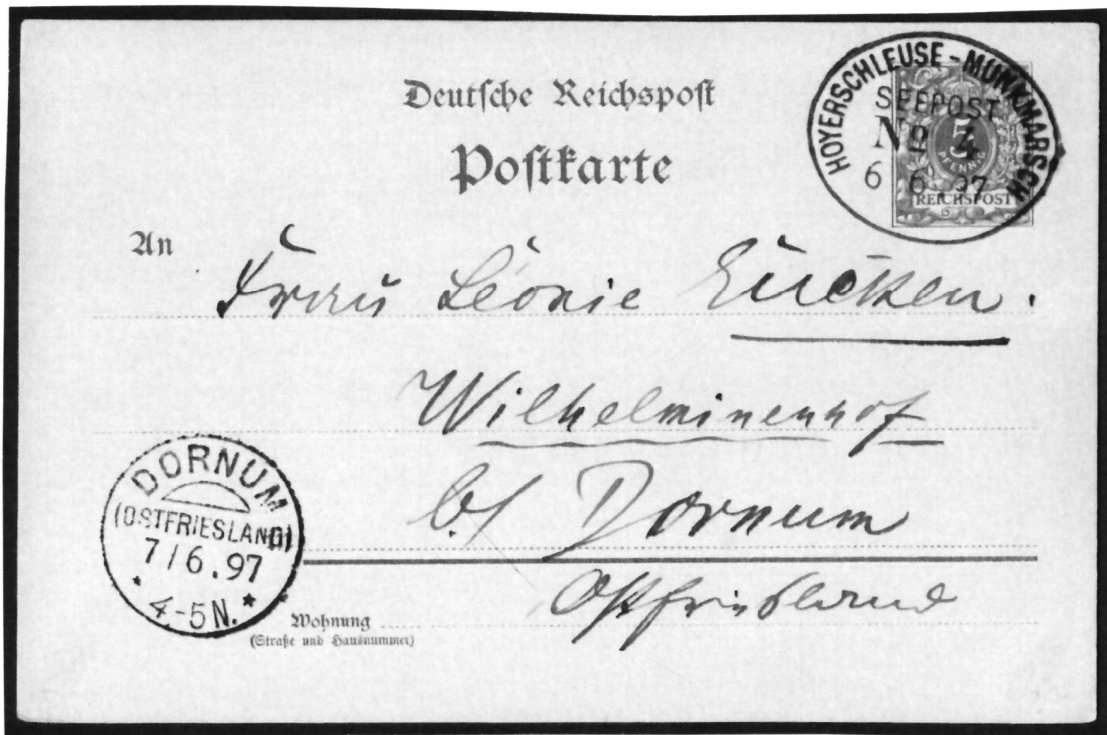 Deutsche Reichspost
Postkarte
HOYERSCHLEUSE - MUNKMARSCH
SEEPOST
No 4
6 6 97
5
REICHSPOST
An
Frau Léonie Eucken.
Wilhelminenhof
b/ Dornum
Ostfriesland
DORNUM
(OSTFRIESLAND)
7/6.97
* 4-5N. *
Wohnung
(Straße und Hausnummer)